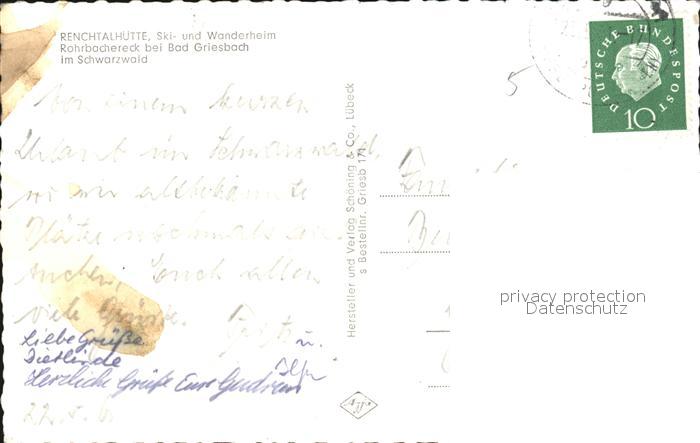 RENCHTALHÜTTE, Ski- und Wanderheim
Rohrbachereck bei Bad Griesbach
im Schwarzwald
DEUTSCHE BUNDESPOST
10
5
Von einem kurzen
Urlaub im Schwarzwald,
wo wir altbekannte
Plätze nochmals
suchen, Euch allen
viele Grüße.
u.
Liebe Grüße
Dietlinde
Herzliche Grüße Eure Gudrun
Hersteller und Verlag Schöning & Co., Lübeck
s Bestellnr. Griesb 171
privacy protection
Datenschutz